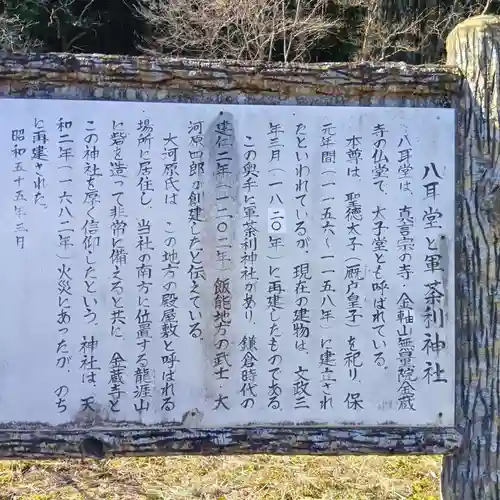 八耳堂と軍荼利神社
八耳堂は、真言宗の寺・金軸山無量院金蔵
寺の仏堂で、太子堂とも呼ばれている。
本尊は、聖徳太子（厩戸皇子）を祀り、保
元年間（一一五六〜一一五八年）に建立され
たといわれているが、現在の建物は、文政三
年三月（一八二〇年）に再建したものである。
この奥手に軍荼利神社があり、鎌倉時代の
建仁二年（一二〇二年）飯能地方の武士・大
河原四郎が創建したと伝えている。
大河原氏は、この地方の殿屋敷と呼ばれる
場所に居住し、当社の南方に位置する龍涯山
に砦を造って非常に備えると共に、金蔵寺と
この神社を厚く信仰したという。神社は、天
和二年（一六八二年）火災にあったが、のち
に再建された。
昭和五十五年三月